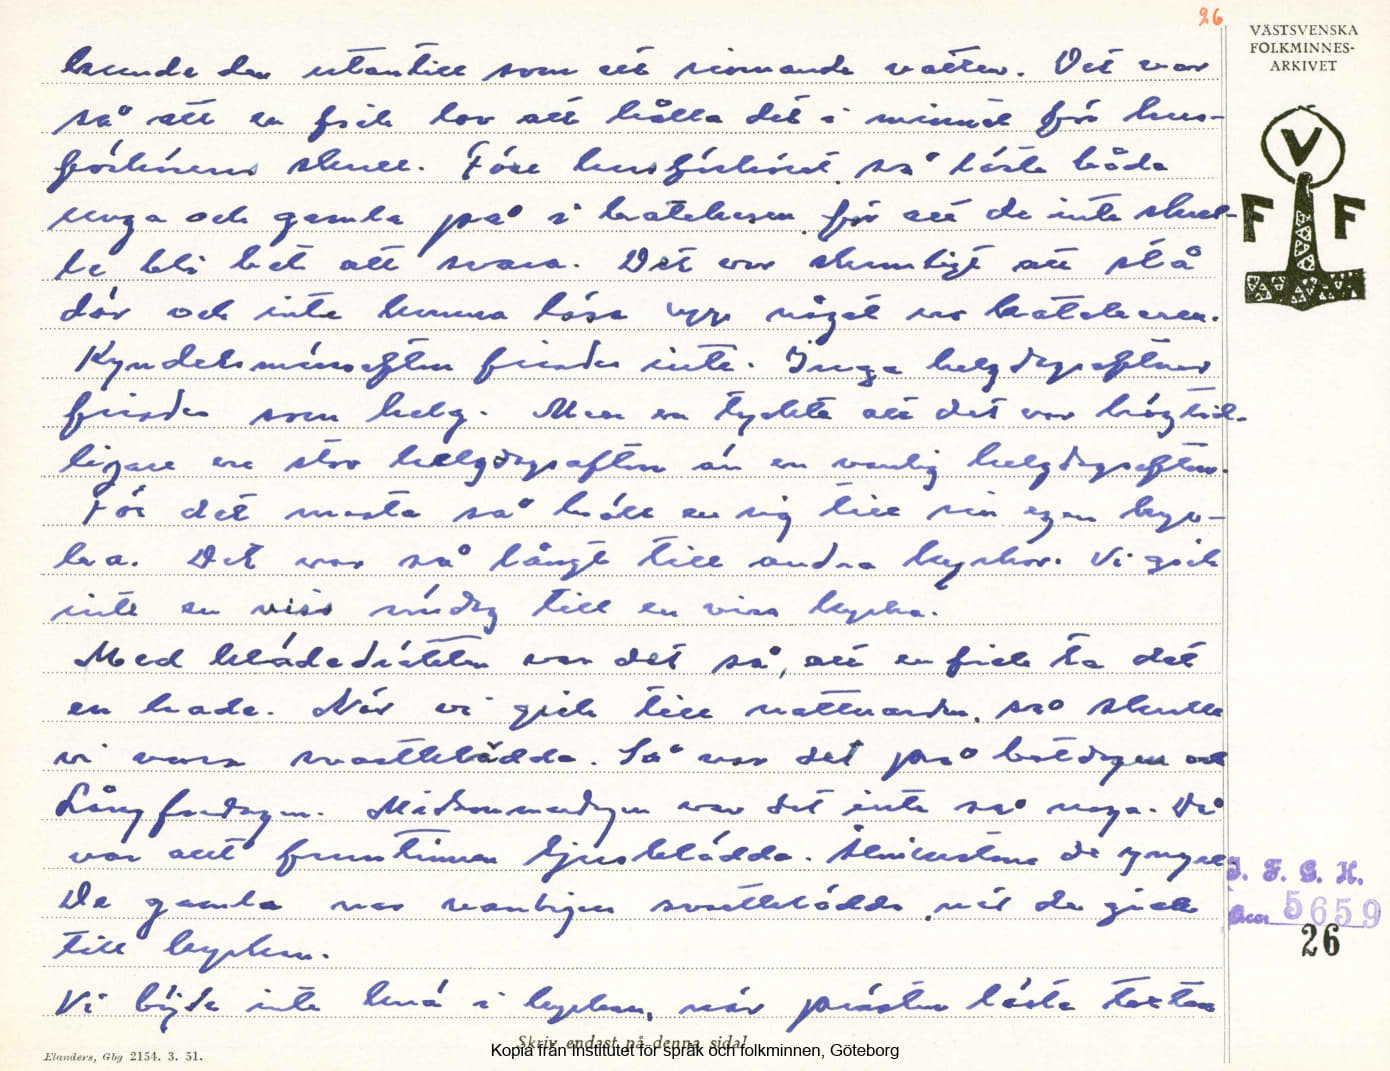 26
VÄSTSVENSKA
FOLKMINNES-
ARKIVET
V
F F
kunde den utantill som ett rinnande vatten. Det var
så att en fick lov att hålla det i minnet för hus-
förhörens skull. Före husförhöret så läste både
unga och gamla på i katekesen för att de inte skul-
le bli het att svara. Det var skamligt att stå
där och inte kunna läsa upp något ur katekesen.
Kyndelsmässoafton firades inte. Inga helgdagsaftnar
firades som helg. Men en tyckte att det var högtid-
ligare en stor helgdagsafton än en vanlig helgdagsafton.
För det mesta så höll en sig till sin egen kyr-
ka. Det var så långt till andra kyrkor. Vi gick
inte en viss söndag till en viss kyrka.
Med klädedräkten var det så, att en fick ta det
en hade. När vi gick till nattvarden, så skulle
vi vara svartklädda. Så var det på botdagen och
Långfredagen. Midsommardagen var det inte så noga. Då
var allt fruntimren ljusklädda. Åtminstone de yngre
De gamla var vanligen svartklädda när de gick
till kyrkan.
Vi böjde inte knä i kyrkan, när prästen läste texten
I. F. G. H.
Acc 5659
26
Skriv endast på denna sida!
Elanders, Gbg 2154. 3. 51.
Kopia från Institutet för språk och folkminnen, Göteborg